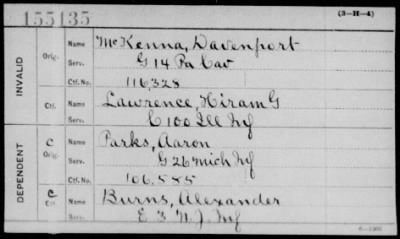 155135
(3-H-4)
INVALID
Orig. Name McKenna, Davenport
Serv. G 14 Pa Cav
Ctf. No. 116,328
Ctf. Name Lawrence, Hiram G
Serv. C 100 Ill Inf
DEPENDENT
C Orig. Name Parks, Aaron
Serv. G 26 Mich Inf
Ctf. No. 106,585
C Ctf. Name Burns, Alexander
Serv. E 3 N.J. Inf